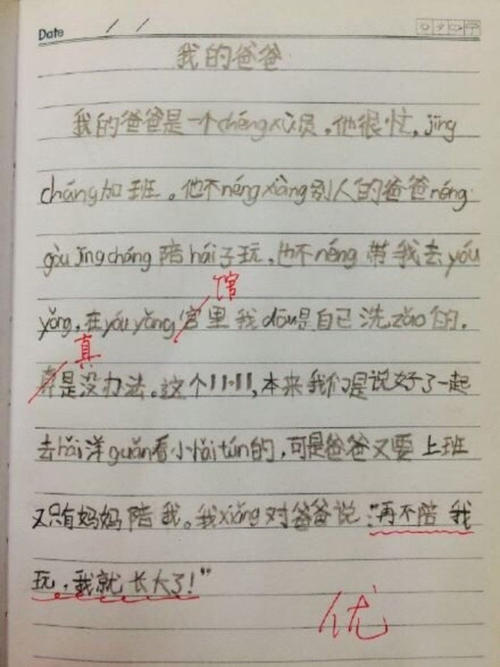 Date / /
我的爸爸
我的爸爸是一个chéngxù员,他很忙,jīng
cháng加班。他不néngxiàng别人的爸爸néng
gòu jīngcháng陪hái子玩,也不néng带我去yóu
yǒng,在yóuyǒng宫里我dōu是自己洗zǎo的,
馆
真
真是没办法。这个11.11,本来我们是说好了一起
去hǎi洋guǎn看小hǎitún的,可是爸爸又要上班
又只有妈妈陪我。我xiǎng对爸爸说:"再不陪我
玩,我就长大了!"
优